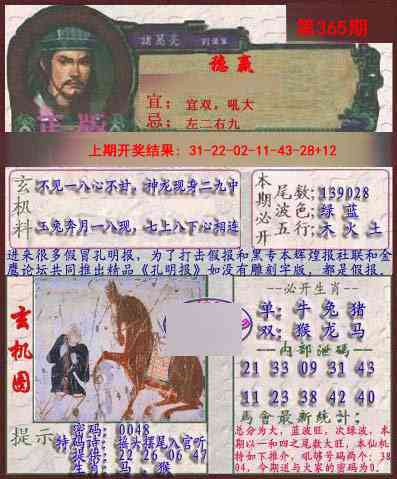 第365期
諸葛亮
刘伯温
稳赢
宜：宜双，吼大
忌：左二右九
正版
上期开奖结果：31-22-02-11-43-28+12
玄机料
不见一八心不甘，神龙现身二九中
玉兔奔月一八现，七上八下心相连
本期必开
尾数:139028
波色:绿 蓝
五行:木 火 土
进来很多假冒孔明报，为了打击假报和黑专本辉煌报社联和金
鹰论坛共同推出精品《孔明报》如没有雕刻字版，都是假报．
玄机图
必开生肖
单:牛 兔 猪
双:猴 龙 马
内部泄码
21 33 09 31 43
11 23 38 42 40
馬會最新統计:
总分为大，蓝波旺，次绿波，本
期以一和四之尾数大旺，本仙机
特如下推介，吼够号码两个：38
04，今期送与大家的密码为0．
提示
密码：0048
特码诗：摇头摆尾入官听
提供：22 26 06 47
生肖：马．猴